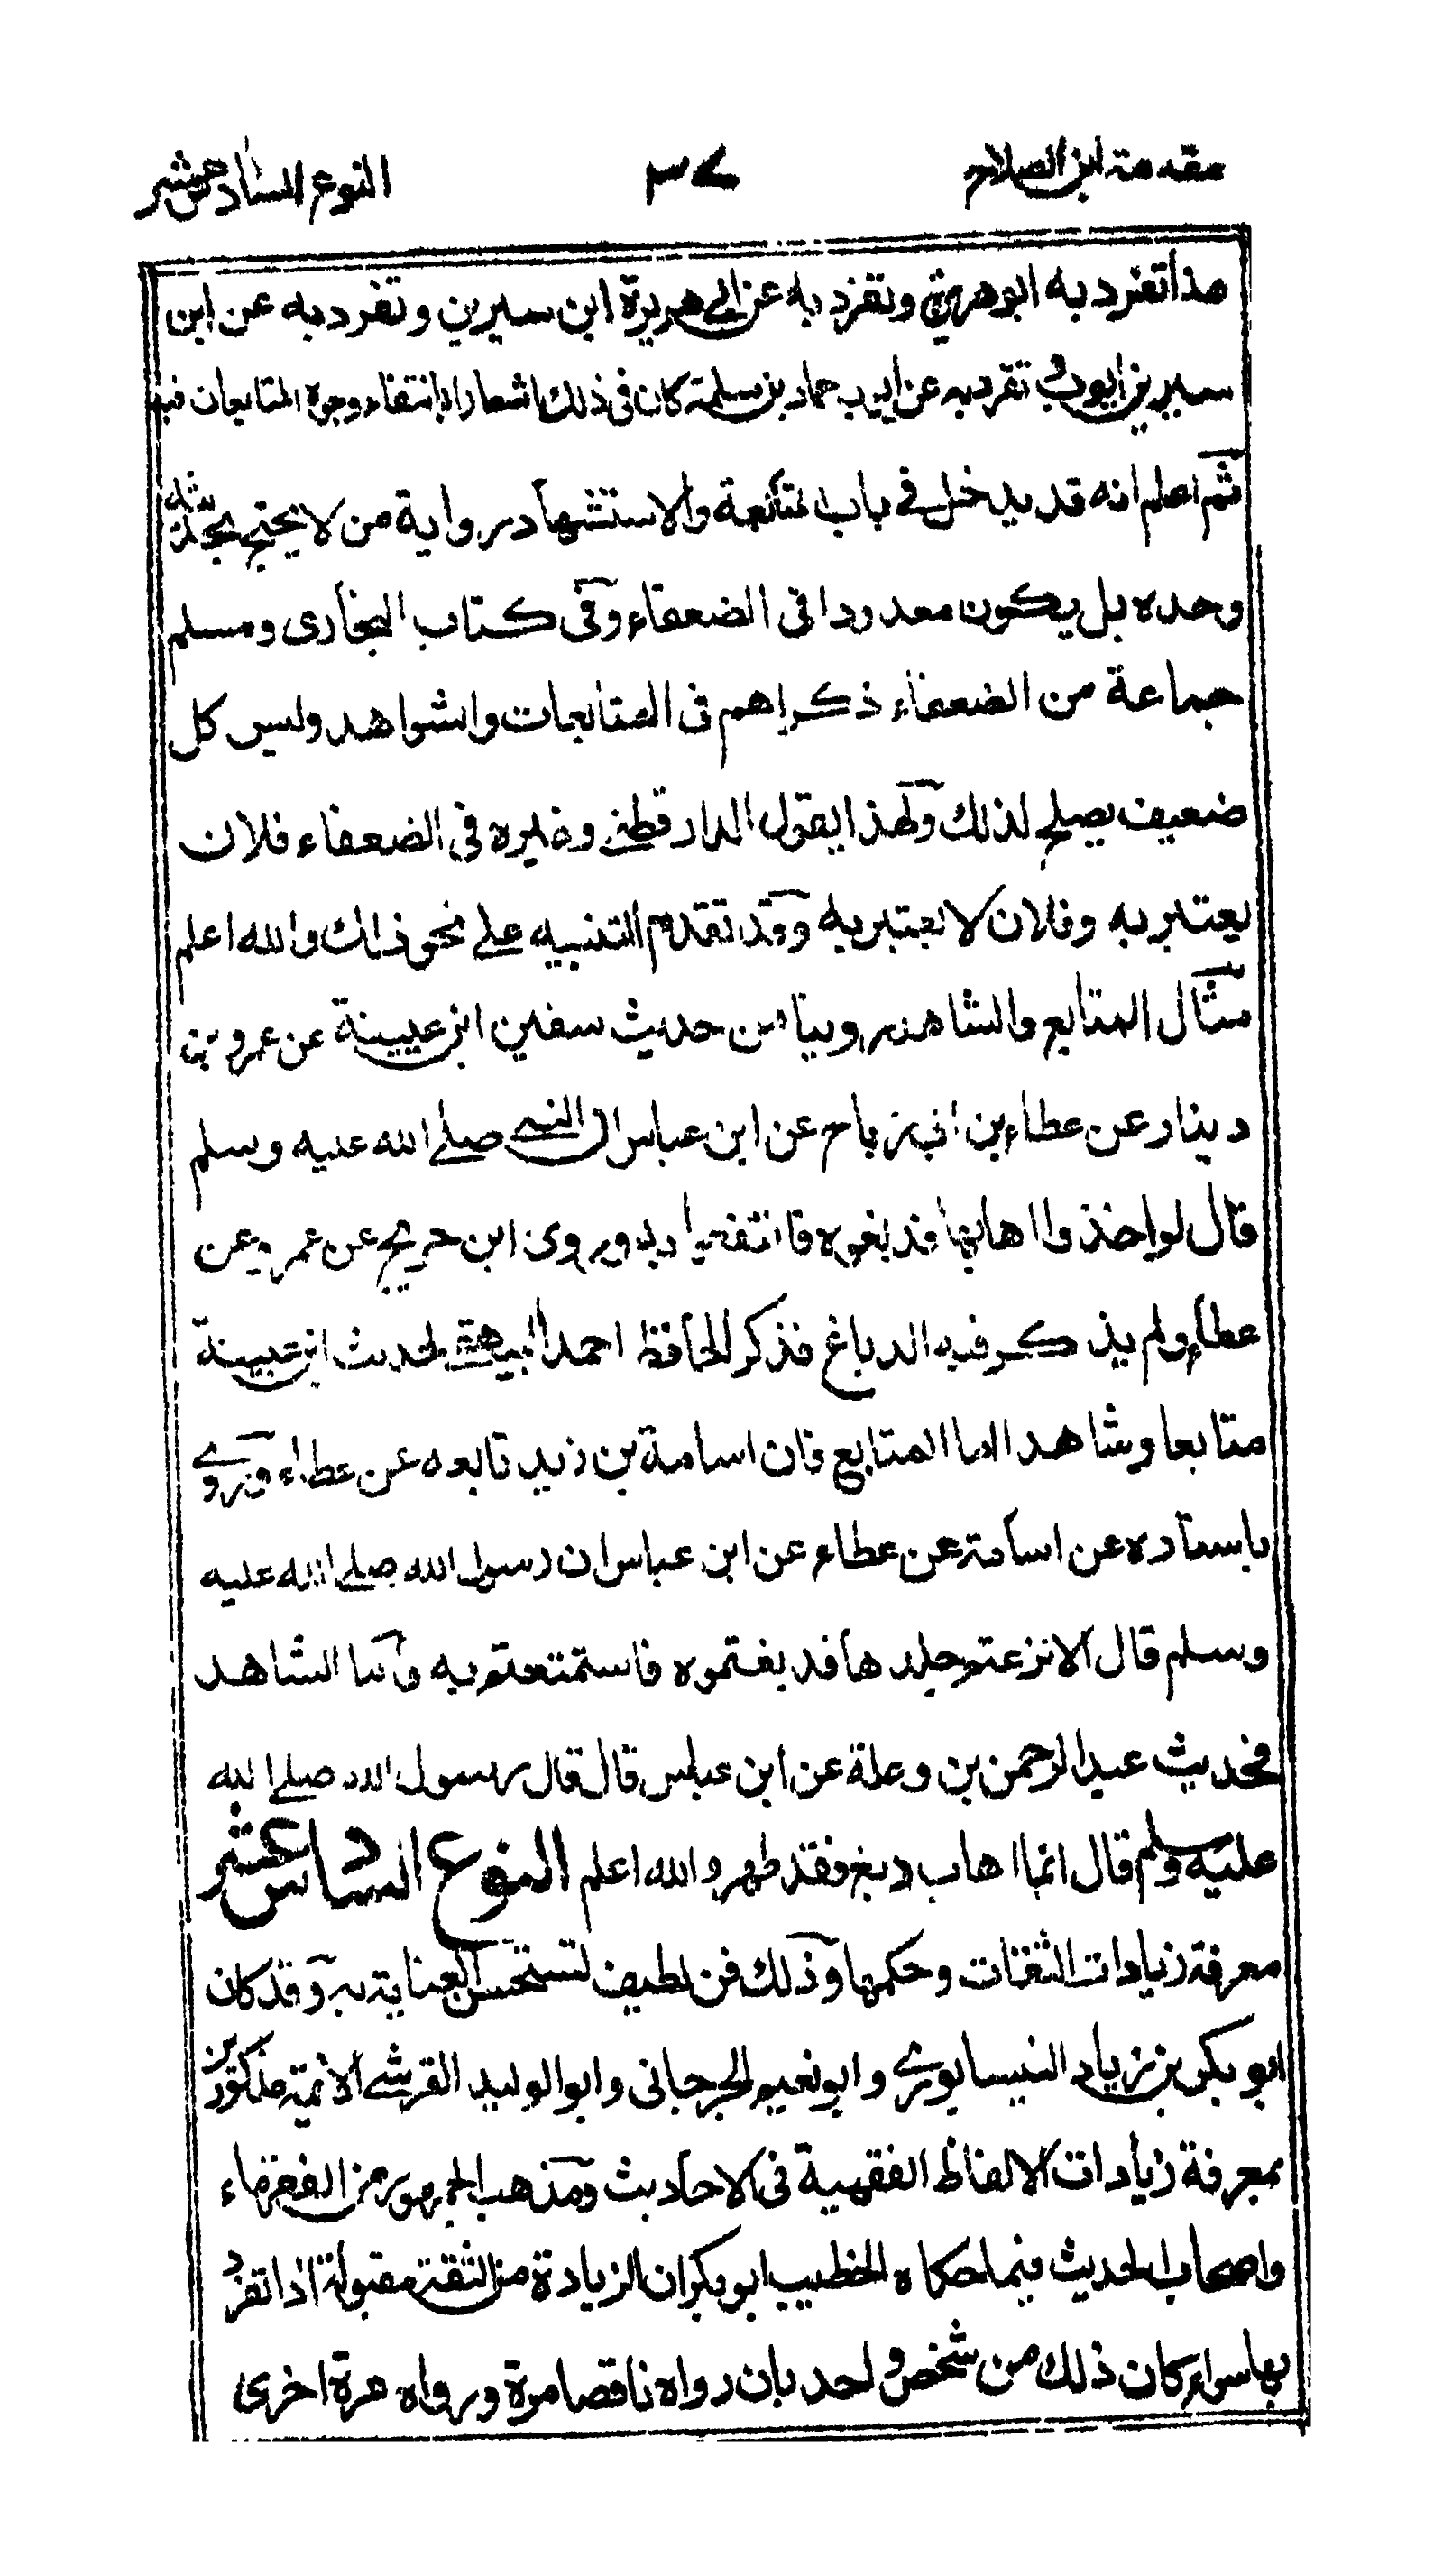 مقدمة ابن الصلاح ٣٧ النوع السادس عشر
هذا تفرد به ابو هريرة وتفرد به عن ابي هريرة ابن سيرين وتفرد به عن ابن
سيرين ايوب وتفرد به عن ايوب حماد بن سلمة كان في ذلك اشعارا بانتفاء وجوه المتابعات فيه
ثم اعلم انه قد يدخل في باب المتابعة والاستشهاد رواية من لا يحتج بحديثه
وحده بل يكون معدودا في الضعفاء وفي كتاب البخارى ومسلم
جماعة من الضعفاء ذكراهم في المتابعات والشواهد وليس كل
ضعيف يصلح لذلك ولهذا يقول الدارقطني وغيره في الضعفاء فلان
يعتبر به وفلان لا يعتبر به وقد تقدم التنبيه على نحو ذلك والله اعلم
مثال المتابع والشاهد روينا من حديث سفين ابن عيينة عن عمرو بن
دينار عن عطاء بن ابي رباح عن ابن عباس ان النبي صلى الله عليه وسلم
قال لو اخذوا اهابها فدبغوه فانتفعوا به وروى ابن جريج عن عمرو عن
عطاء ولم يذكر فيه الدباغ فذكر الحافظ احمد البيهقي لحديث ابن عيينة
متابعا وشاهدا اما المتابع فان اسامة بن زيد تابعه عن عطاء وروى
باسناده عن اسامة عن عطاء عن ابن عباس ان رسول الله صلى الله عليه
وسلم قال الا نزعتم جلدها فدبغتموه فاستمتعتم به واما الشاهد
فحديث عبد الرحمن بن وعلة عن ابن عباس قال قال رسول الله صلى الله
عليه وسلم قال ايما اهاب دبغ فقد طهر والله اعلم النوع السادس عشر
معرفة زيادات الثقات وحكمها وذلك فن لطيف تستحسن العناية به وقد كان
ابو بكر بن زياد النيسابوري وابو نعيم الجرجانى وابو الوليد القرشي الائمة مذكورين
بمعرفة زيادات الالفاظ الفقهية في الاحاديث ومذهب الجمهور من الفقهاء
واصحاب الحديث فيما حكاه الخطيب ابو بكر ان الزيادة من الثقة مقبولة اذا تفرد
بها سواء كان ذلك من شخص واحد بان رواه ناقصا مرة ورواه مرة اخرى